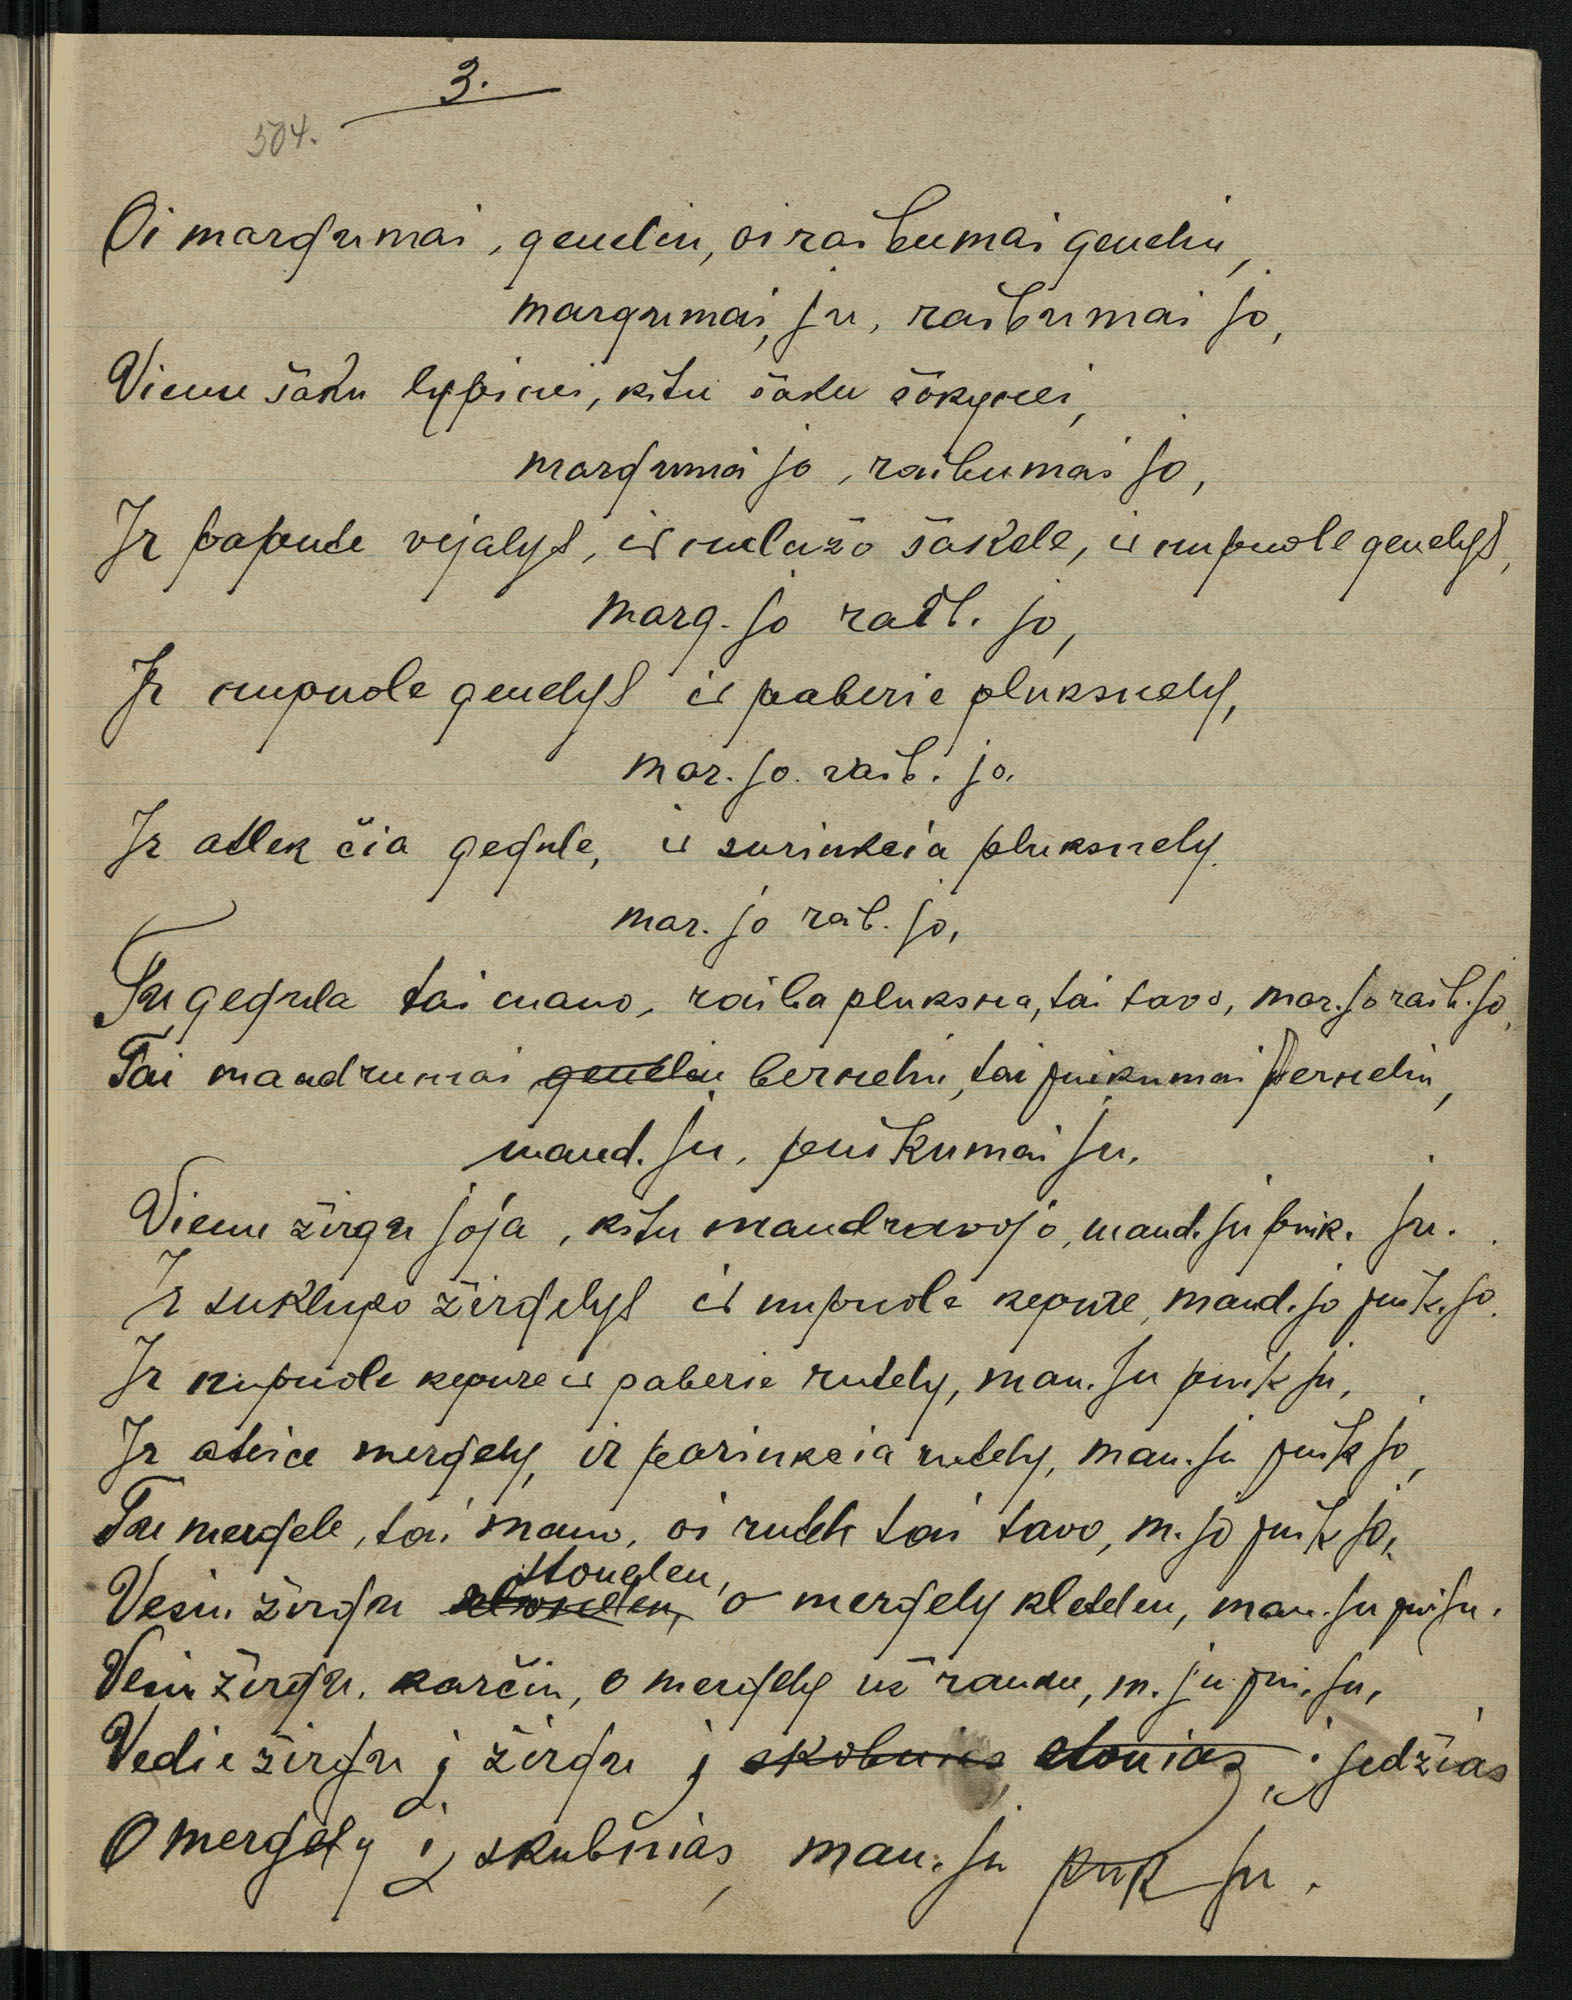 3.
504.
Oi margumai, genelin, oi raibumai genelin,
margumai, ju, raibumai jo,
Vienu šaku lypinei, kitu šaku šokynei,
margumai jo, raibumai jo,
Ir papute vėjalys, ir nulažo šakele, ir nupuole genelys,
marg. jo raib. jo,
Ir nupuole genelys ir paberie pluksnely,
mar. jo. raib. jo.
Ir atlek čia gegule, ir surinkcia pluksnely.
mar. jo raib. jo,
Tu gegula tai mano, raiba pluksna, tai tavo, mar. jo raib. jo,
Tai mandrumai genelin bernelin, tai puikumai bernelin,
mand. ju, puikumai ju.
Vienu žirgu joja, kitu mandravojo, mand. ju puik. ju.
Ir suklupo žirgelys ir nupuole kepure, mand. jo puik. jo.
Ir nupuole kepure ir paberie rutely, man. ju puik ju,
Ir ateica mergely, ir parinkcia rutely, man. ju puik jo,
Tu mergele, tai mano, oi rutele tai tavo, m. jo puik jo,
stonelen,
Vesiu žirgu o mergely kletelen, man. ju pui ju.
Vesiu žirgu, karčiu, o mergely už ranku, m. ju pui. ju,
Vedie žirgu į žirgu į skobnias stonias, į jedžias
O mergely į skubnias, man. ju puik ju.